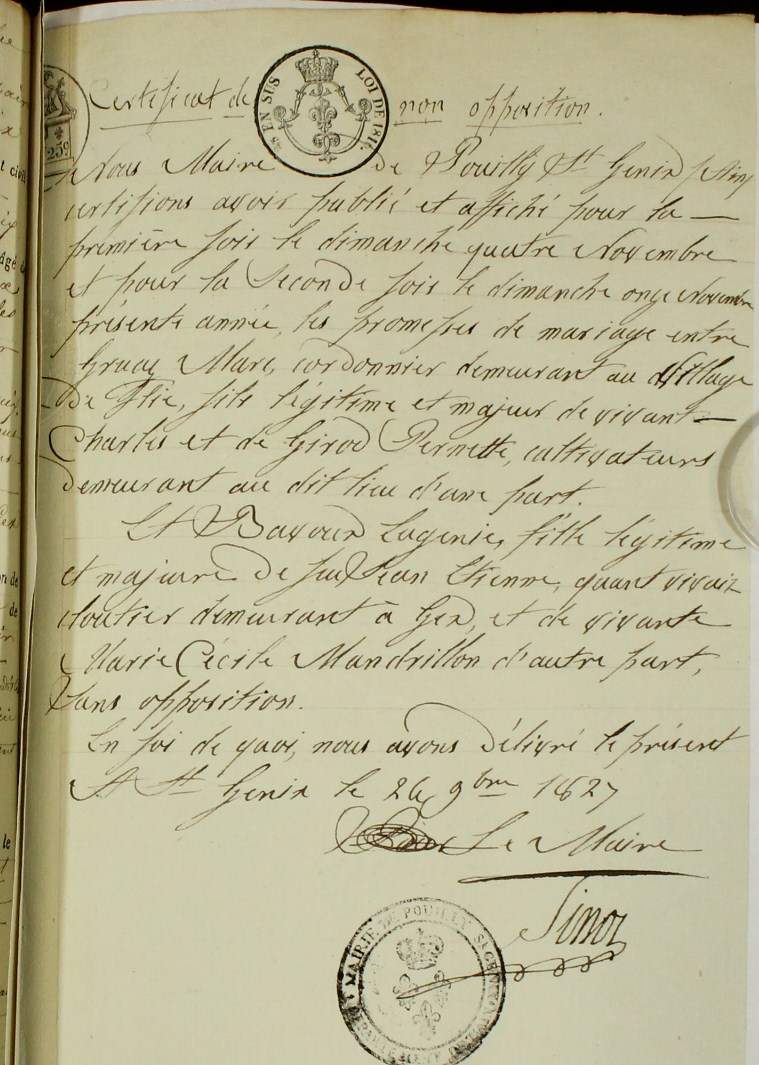 Certificat de non opposition.
EN SUS LOI DE 1816
Nous Maire de Pouilly St Genix (Ain)
certifions avoir publié et affiché pour la
première fois le dimanche quatre Novembre
et pour la Seconde fois le dimanche onze Novembre
présente année, les promesses de mariage entre
Marc, cordonnier demeurant au Village
De Flie, fils légitime et majeur de vivant
Charles et de Girod Pernette, cultivateurs
demeurant au dit lieu d'une part.
Et Eugenie, fille légitime
et majeure de feu Jean Etienne, quant vivait
cloutier demeurant à Gex, et de vivante
Marie Cécile Mandrillon d'autre part,
Sans opposition.
En foi de quoi, nous avons Délivré le présent
A St Genix le 26 9bre 1827
Le Maire
MAIRIE DE POUILLY